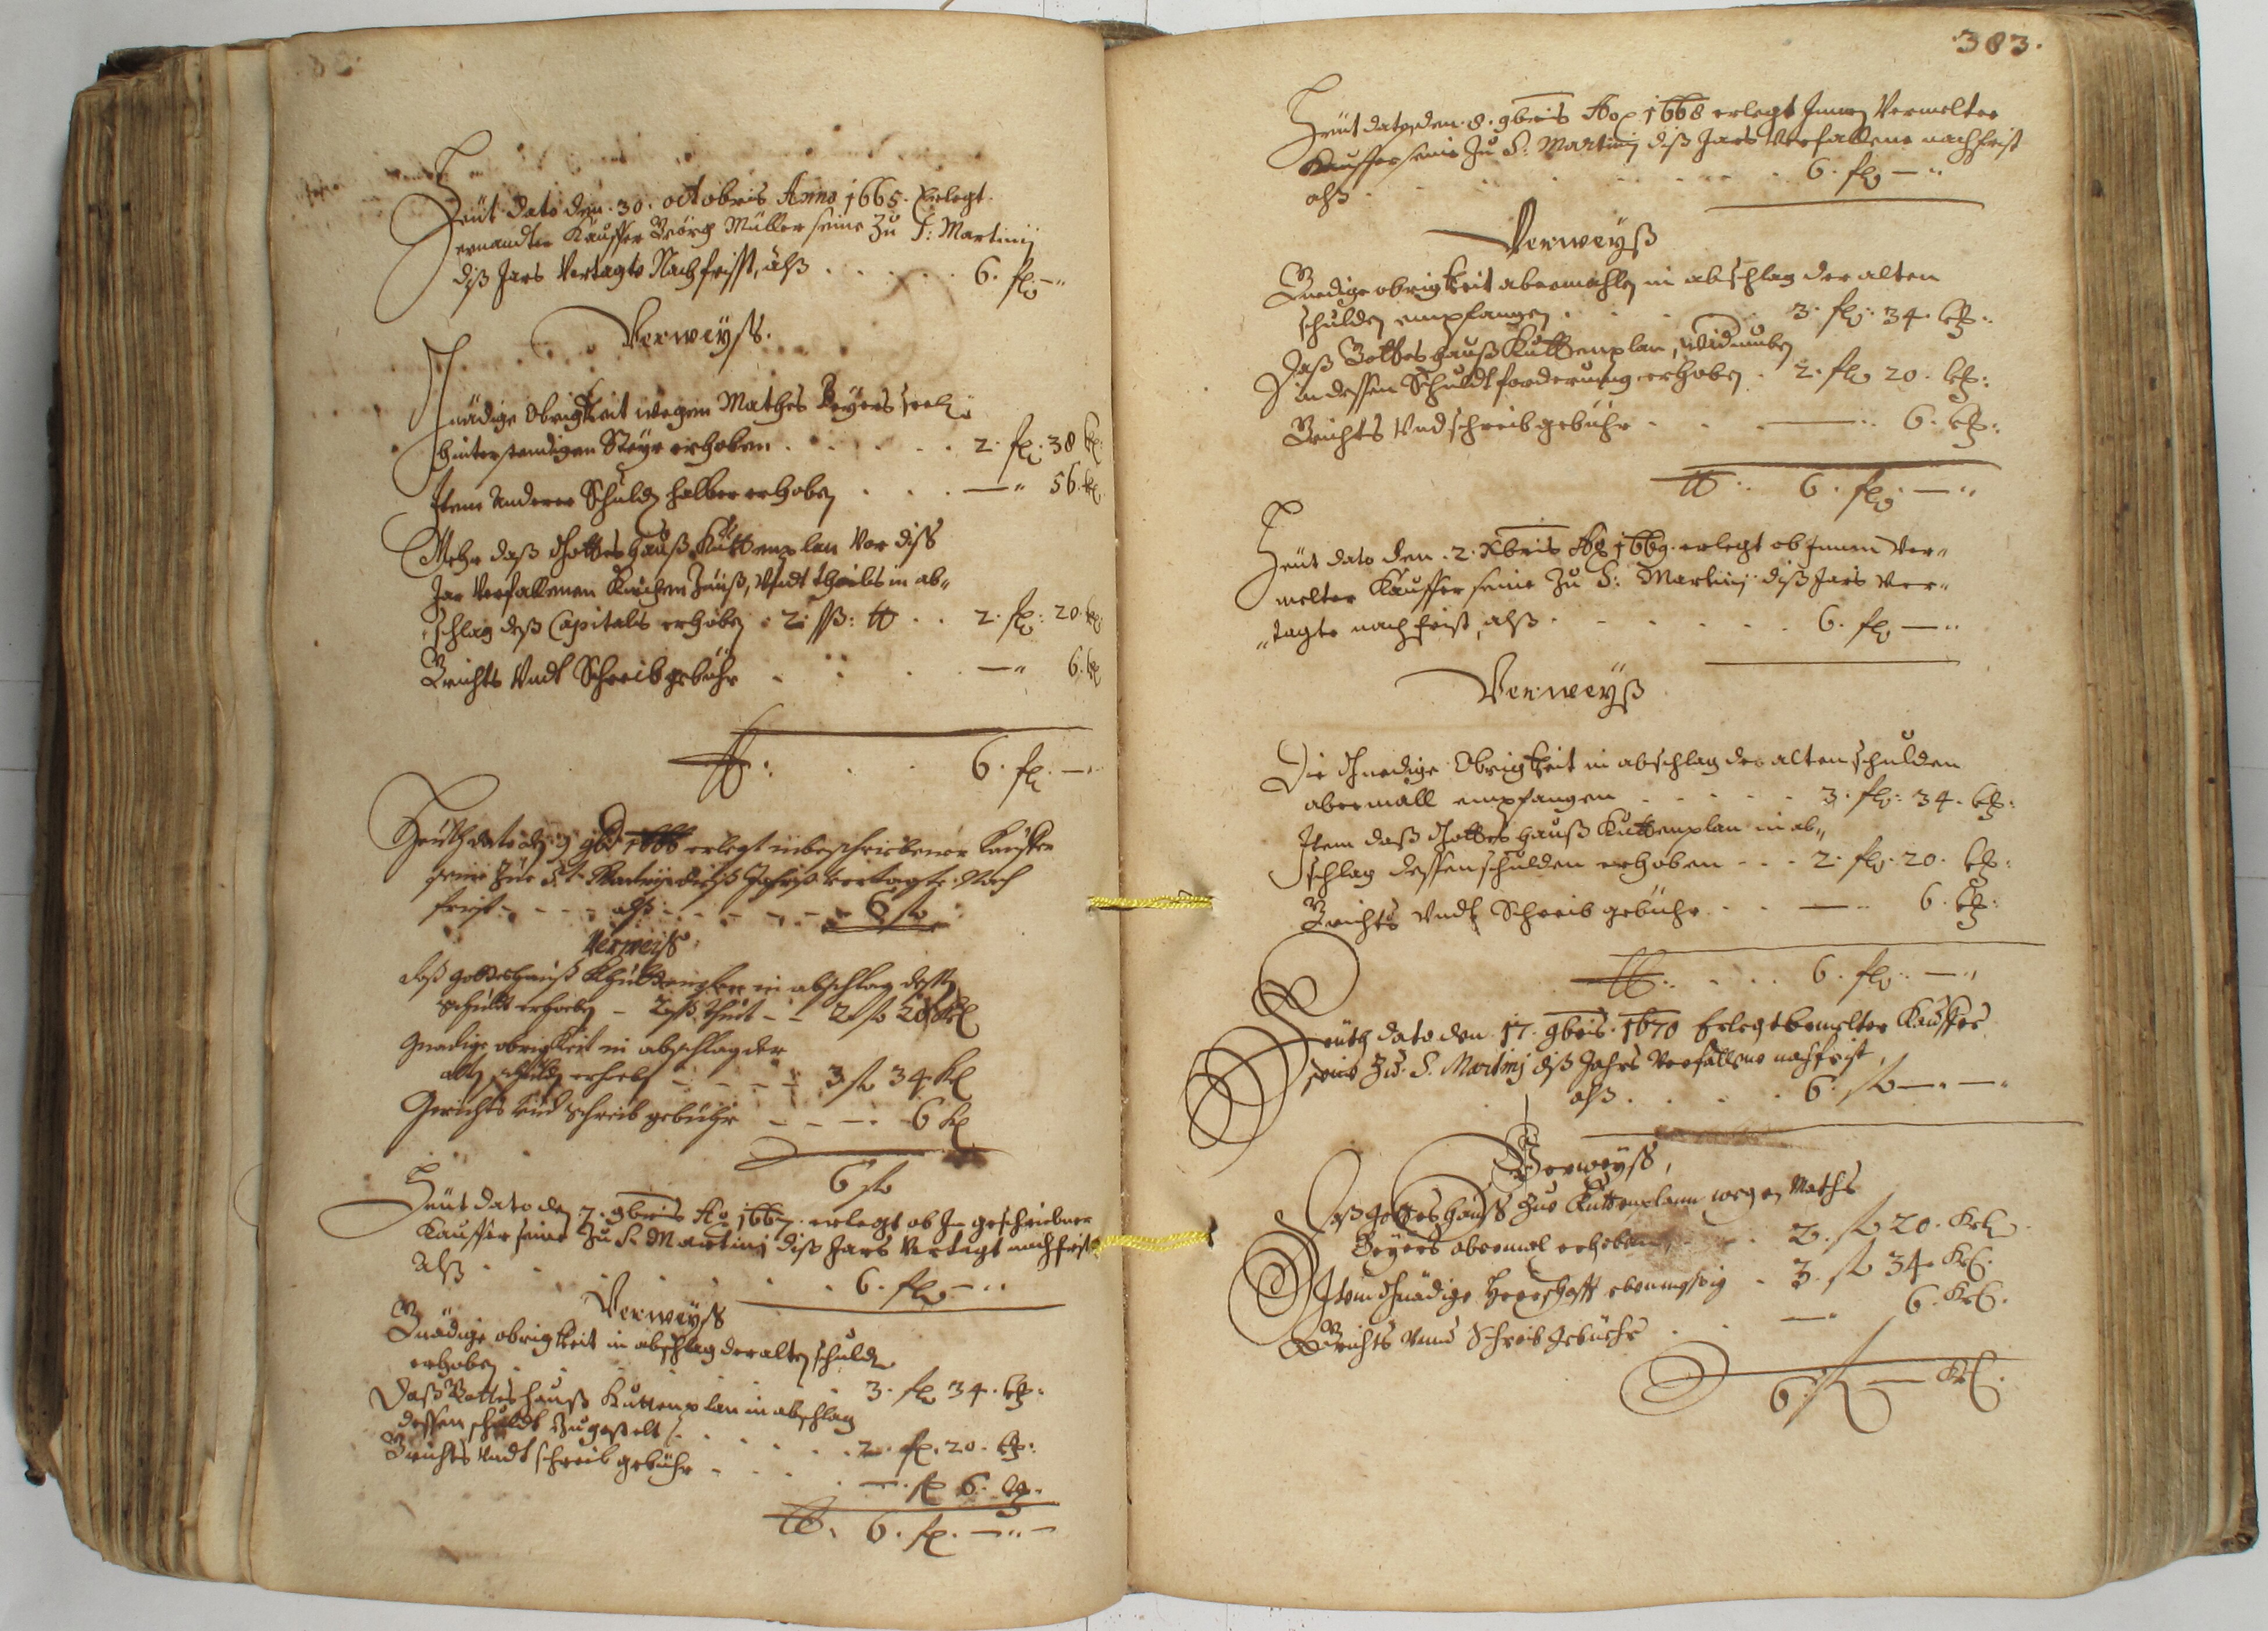 Heüt dato den. 30. octobris Anno 1665. Erlegt
ernandter Kauffer Geörg Müller seine Zu S: Martinij
diß Jars Vertagte Nachfrisst, alß . . . . . 6. fl —"
Verweÿß.
Gnädige Obrigkeit wegen Mathes Beÿers seel:
hinterstendigen Steÿr erhoben . . . . . . 2. fl: 38 kr:
Item Anderer Schuldn halber erhoben . . . —" 56. kr
Mehr daß Gotteshauß Kuttenplan Vor diß
Jar Verfallenen Kirchen Zinß, Vndt theils in ab-
schlag deß Capitals erhoben . 2. ß: tt . . 2. fl: 20. kr:
Grichts Vndt Schreibgebühr . . . . —" 6. kr
tt: . . 6. fl. —"
Heüth dato den 9 9bris 1666 erlegt inbeschriebener Kauffer
seine Zue St. Martinj dieß Jahrß vertagte Nach
frist . - - - alß - - - - - 6 fl
Verweiß
daß gotteshauß Khuttenplan in abschlag desen
schuldt erhoben - 2 ß thut - - 2 fl 20 Krl
Gnadige obrigkeit in abschlag der
alten schulden erhoben - - - - 3 fl 34 Kl
Gerichts vnd schreib gebühr - - - - 6 Kl
6 fl
Heüt dato den 7. 9bris Ao 1667. erlegt ob In geschriebner
Kauffer seine Zu S. Martinj diß Jars Vertagt nachfrist
Alß . . . . . . . 6. fl —"
Verweÿß
Gnädige obrigkeit in abschlag der alten schuldn
erhoben . . . . . 3. fl 34. kr:
Daß Gotteshauß Kuttenplan in abschlag
dessen schuldt Zugestelt . . . . . . 2. fl. 20. kr:
Grichts Vndt schreib gebühr - . . . — fl 6. kr.
tt. 6. fl. —"—
383.
Heüt dato den. 8. 9bris Ao 1668 erlegt Innen Vermelter
Kauffer seine Zu S: Martinj diß Jars Verfallene nachfrist
alß . . . . . . . . 6. fl —"
Verweÿß
Gnedige obrigkeit abermahln in abschlag der alten
schulden empfangen . . . . 3. fl: 34. kr:
Daß Gotteshauß Kuttenplan,
in dessen Schuldtforderung erhoben . 2. fl 20. kr:
Grichts Vnd schreib gebühr . . . —" 6. kr:
tt: 6. fl —"
Heüt dato den. 2. Xbris Ao 1669. erlegt ob Innen Ver-
melter Kauffer seine Zu S: Martinj diß Jars Ver-
tagte nachfrist, alß . . . . . . 6. fl —"
Verweÿß
Die Gnedige Obrigkeit in abschlag der alten schulden
abermall empfangen . . . . . 3. fl: 34. kr:
Item daß Gottes hauß Kuttenplan in ab-
schlag dessen schulden erhoben - - - 2. fl: 20. kr:
Grichts Vndt Schreib gebühr . . — " 6. kr:
tt: . . . 6. fl: —"
Heüth dato den 17. 9bris. 1670 Erlegt bemelter Kauffer
seine Zu. S. Martinj diß Jahrs Verfallene nachfrist,
alß . . . . 6. fl —.—.
Verweÿß,
Daß Gotteshauß Zue Kuttenplann wegen Maths
Beÿers abermal erhoben . . . 2. fl 20. Krl
Item Gnädige Herrschafft ebenmessig . 3. fl 34. Krl.
Grichts Vnnd Schreib Gebüehr . . —" 6. Krl.
6. fl — Krl.